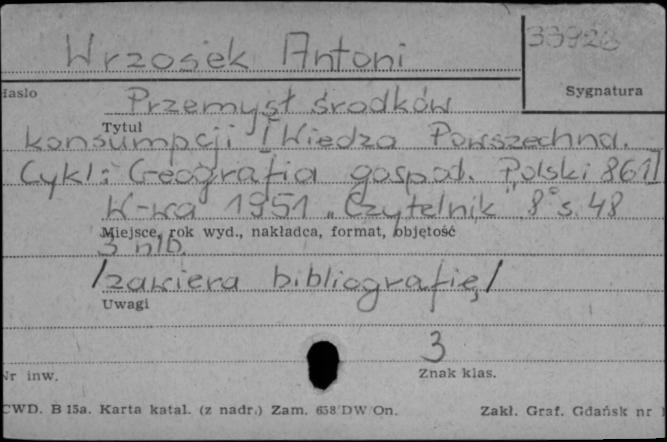 Wrzosek Antoni
33928
Hasło
Sygnatura
Przemysł środków
Tytuł
konsumpcji [Wiedza Powszechna.
Cykl: Geografia gospod. Polski 861]
W-wa 1951 "Czytelnik" 8° s. 48
Miejsce, rok wyd., nakładca, format, objętość
3 nlb.
/zawiera bibliografię/
Uwagi
3
Nr inw.
Znak klas.
CWD. B 15a. Karta katal. (z nadr.) Zam. 658 DW On.
Zakł. Graf. Gdańsk nr 1